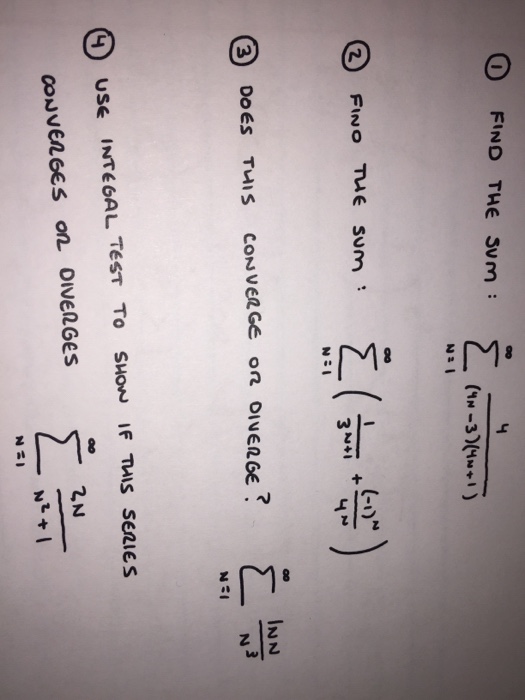 ① FIND THE SUM: ∞ Σ N=1 4/((4N-3)(4N+1))
② FIND THE SUM: ∞ Σ N=1 (1/3^(N+1) + (-1)^N/4^N)
③ DOES THIS CONVERGE OR DIVERGE? ∞ Σ N=1 lNN/N^3
④ USE INTEGAL TEST TO SHOW IF THIS SERIES
CONVERGES OR DIVERGES ∞ Σ N=1 2N/(N^2+1)